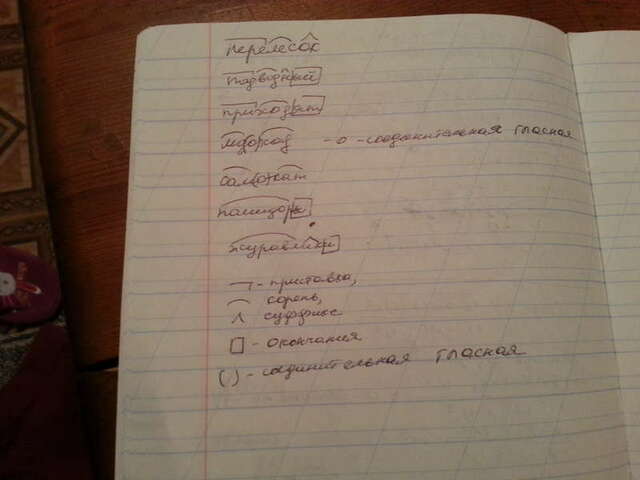 перелесок
подводный
приходят
мороход - о - соединительная гласная
самокат
помидоры
журавлики
¬ - приставка,
⌒ корень,
^ суффикс
□ - окончания
(.) - соединительная гласная